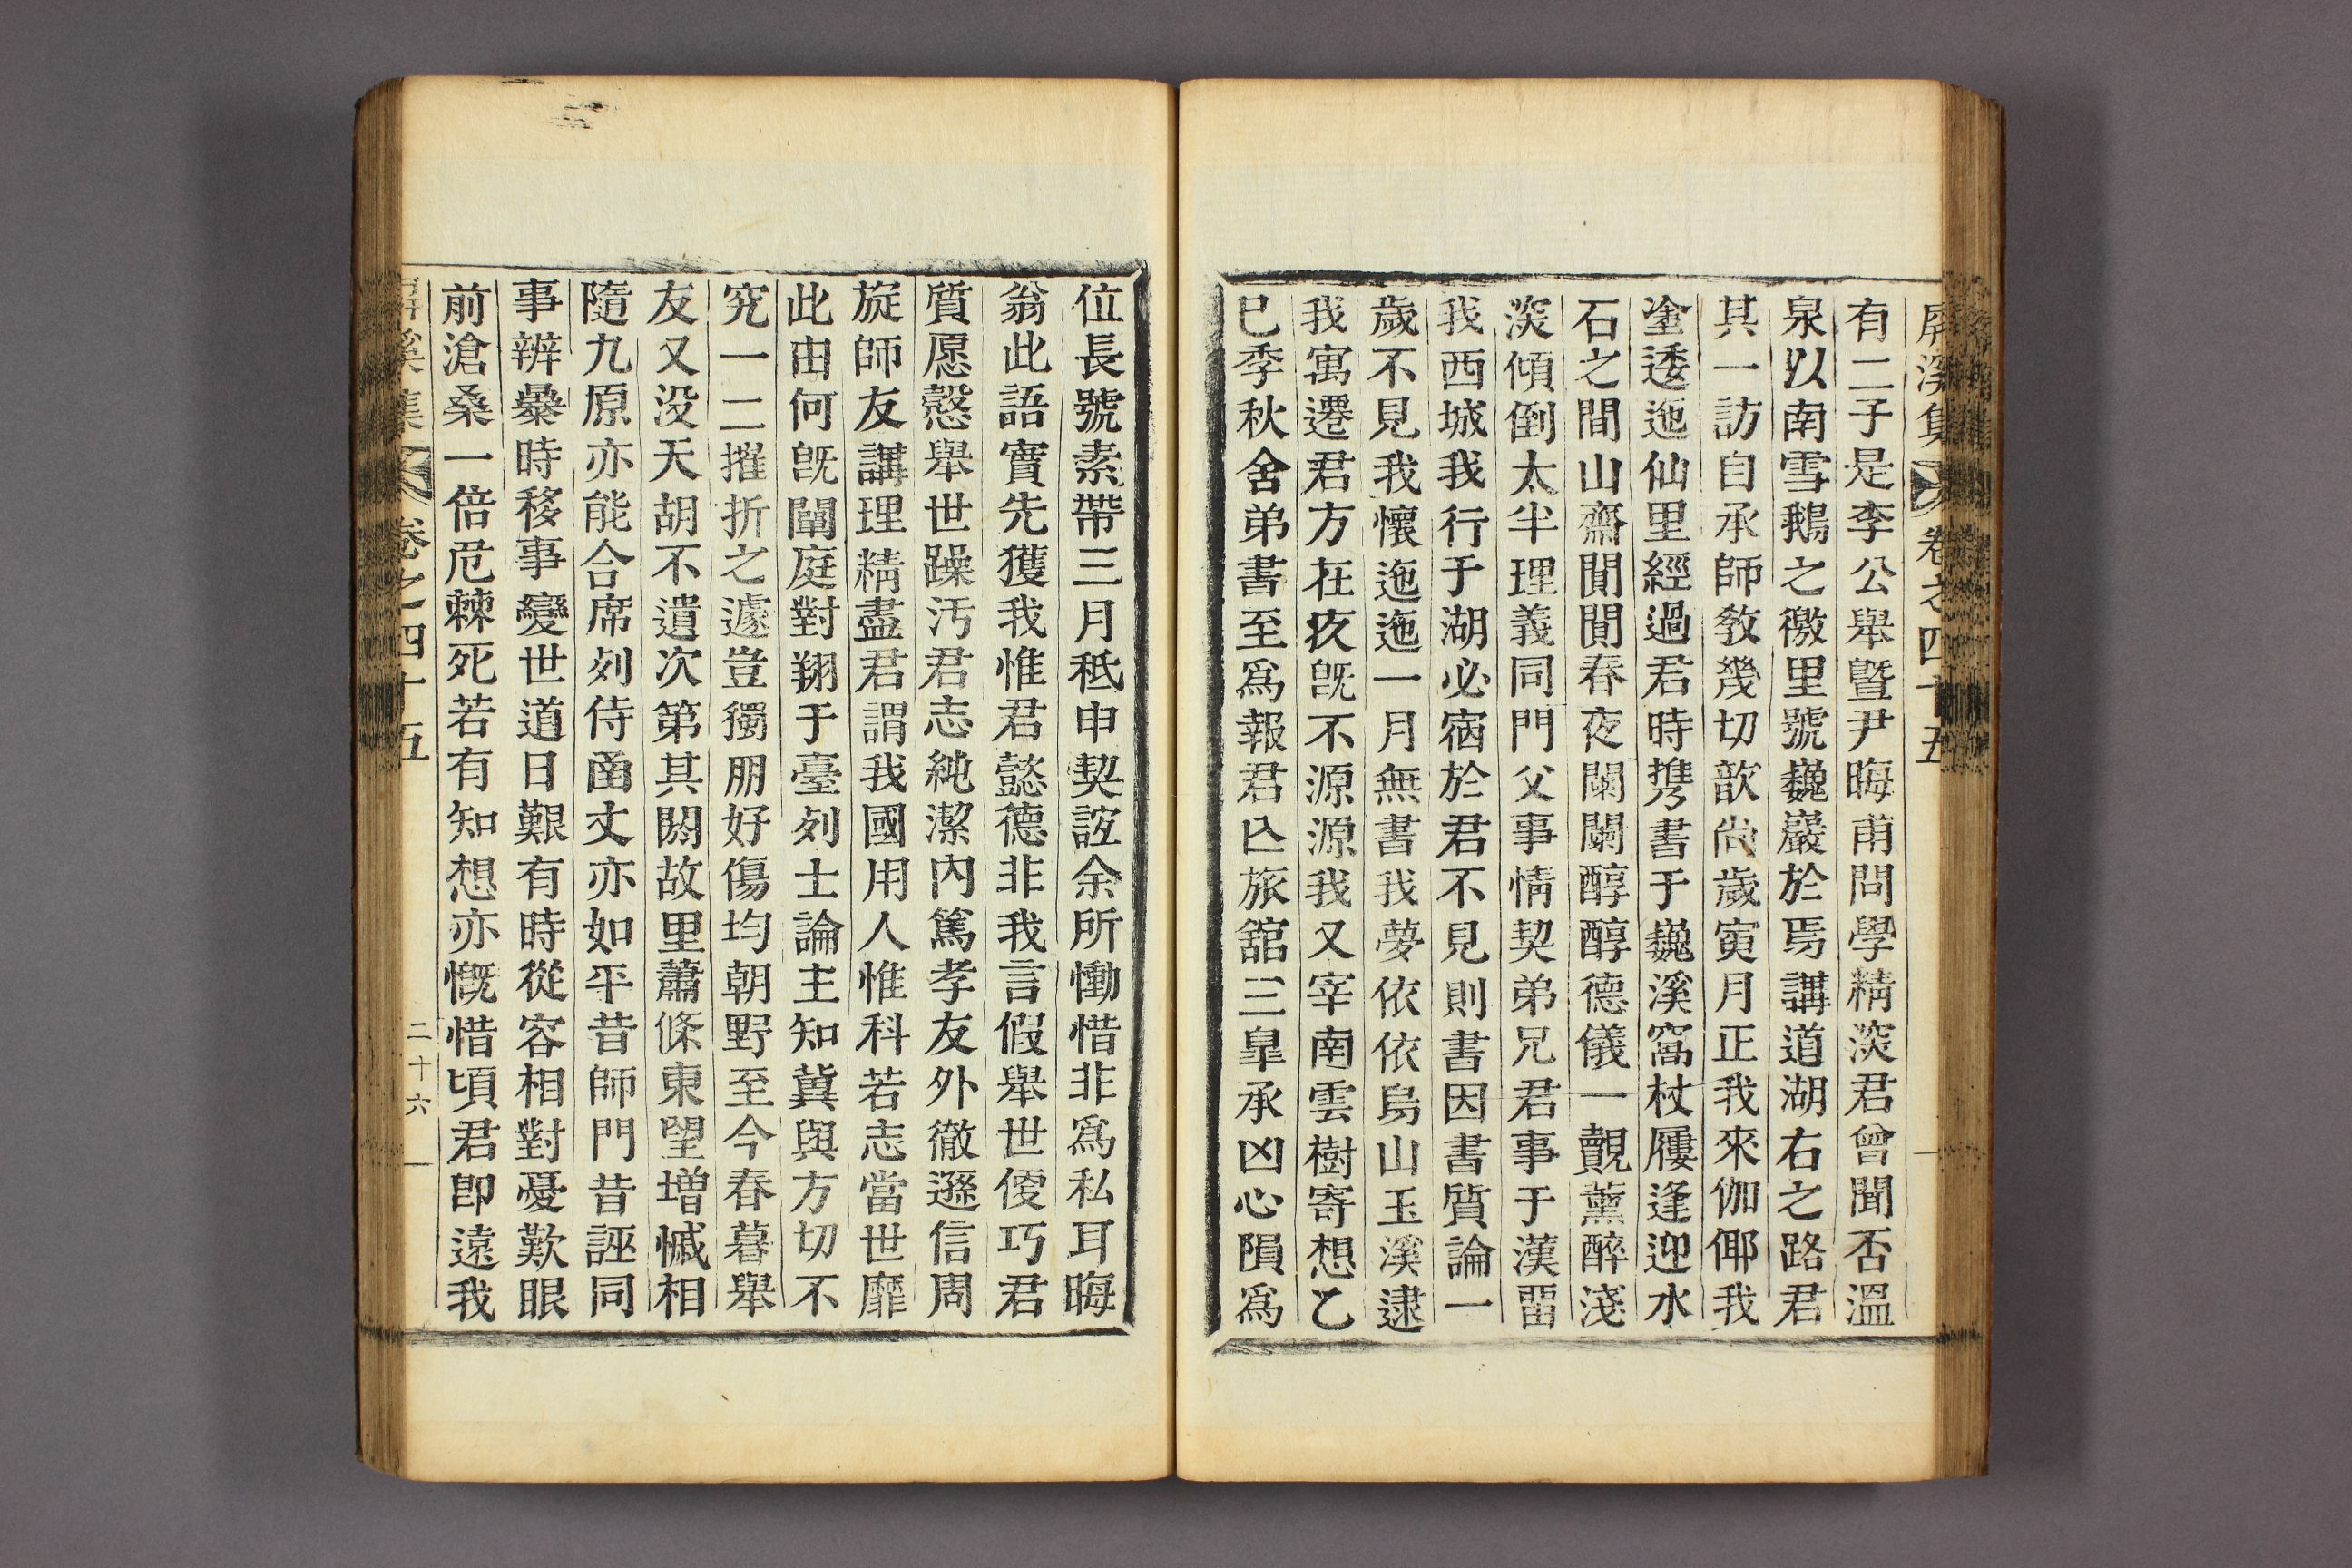 屛溪集 卷之四十五
有二子是李公舉曁尹晦甫問學精深君曾聞否溫
泉以南雪鵝之徼里號巍巖於焉講道湖右之路君
其一訪自承師敎幾切歆尙歲寅月正我來伽倻我
塗逶迤仙里經過君時携書于巍溪窩杖屨逢迎水
石之間山齋閴閴春夜闌闌醇醇德儀一覿薰醉淺
深傾倒太半理義同門父事情契弟兄君事于漢畱
我西城我行于湖必宿於君不見則書因書質論一
歲不見我懷迤迤一月無書我夢依依烏山玉溪逮
我寓遷君方在疚旣不源源我又宰南雲樹寄想乙
巳季秋舍弟書至爲報君亾旅舘三皐承凶心隕爲
位長號素帶三月秪申契誼余所慟惜非爲私耳晦
翁此語實先獲我惟君懿德非我言假舉世便巧君
質愿愨舉世躁汚君志純潔內篤孝友外徹遜信周
旋師友講理精盡君謂我國用人惟科若志當世靡
此由何旣闡庭對翔于臺列士論主知冀與方切不
究一二摧折之遽豈獨朋好傷均朝野至今春暮舉
友又沒天胡不遺次第其閼故里蕭條東望增慽相
隨九原亦能合席列侍凾丈亦如平昔師門昔誣同
事辨暴時移事變世道日艱有時從容相對憂歎眼
前滄桑一倍卮棘死若有知想亦慨惜頃君卽遠我
屛溪集 卷之四十五 二十六